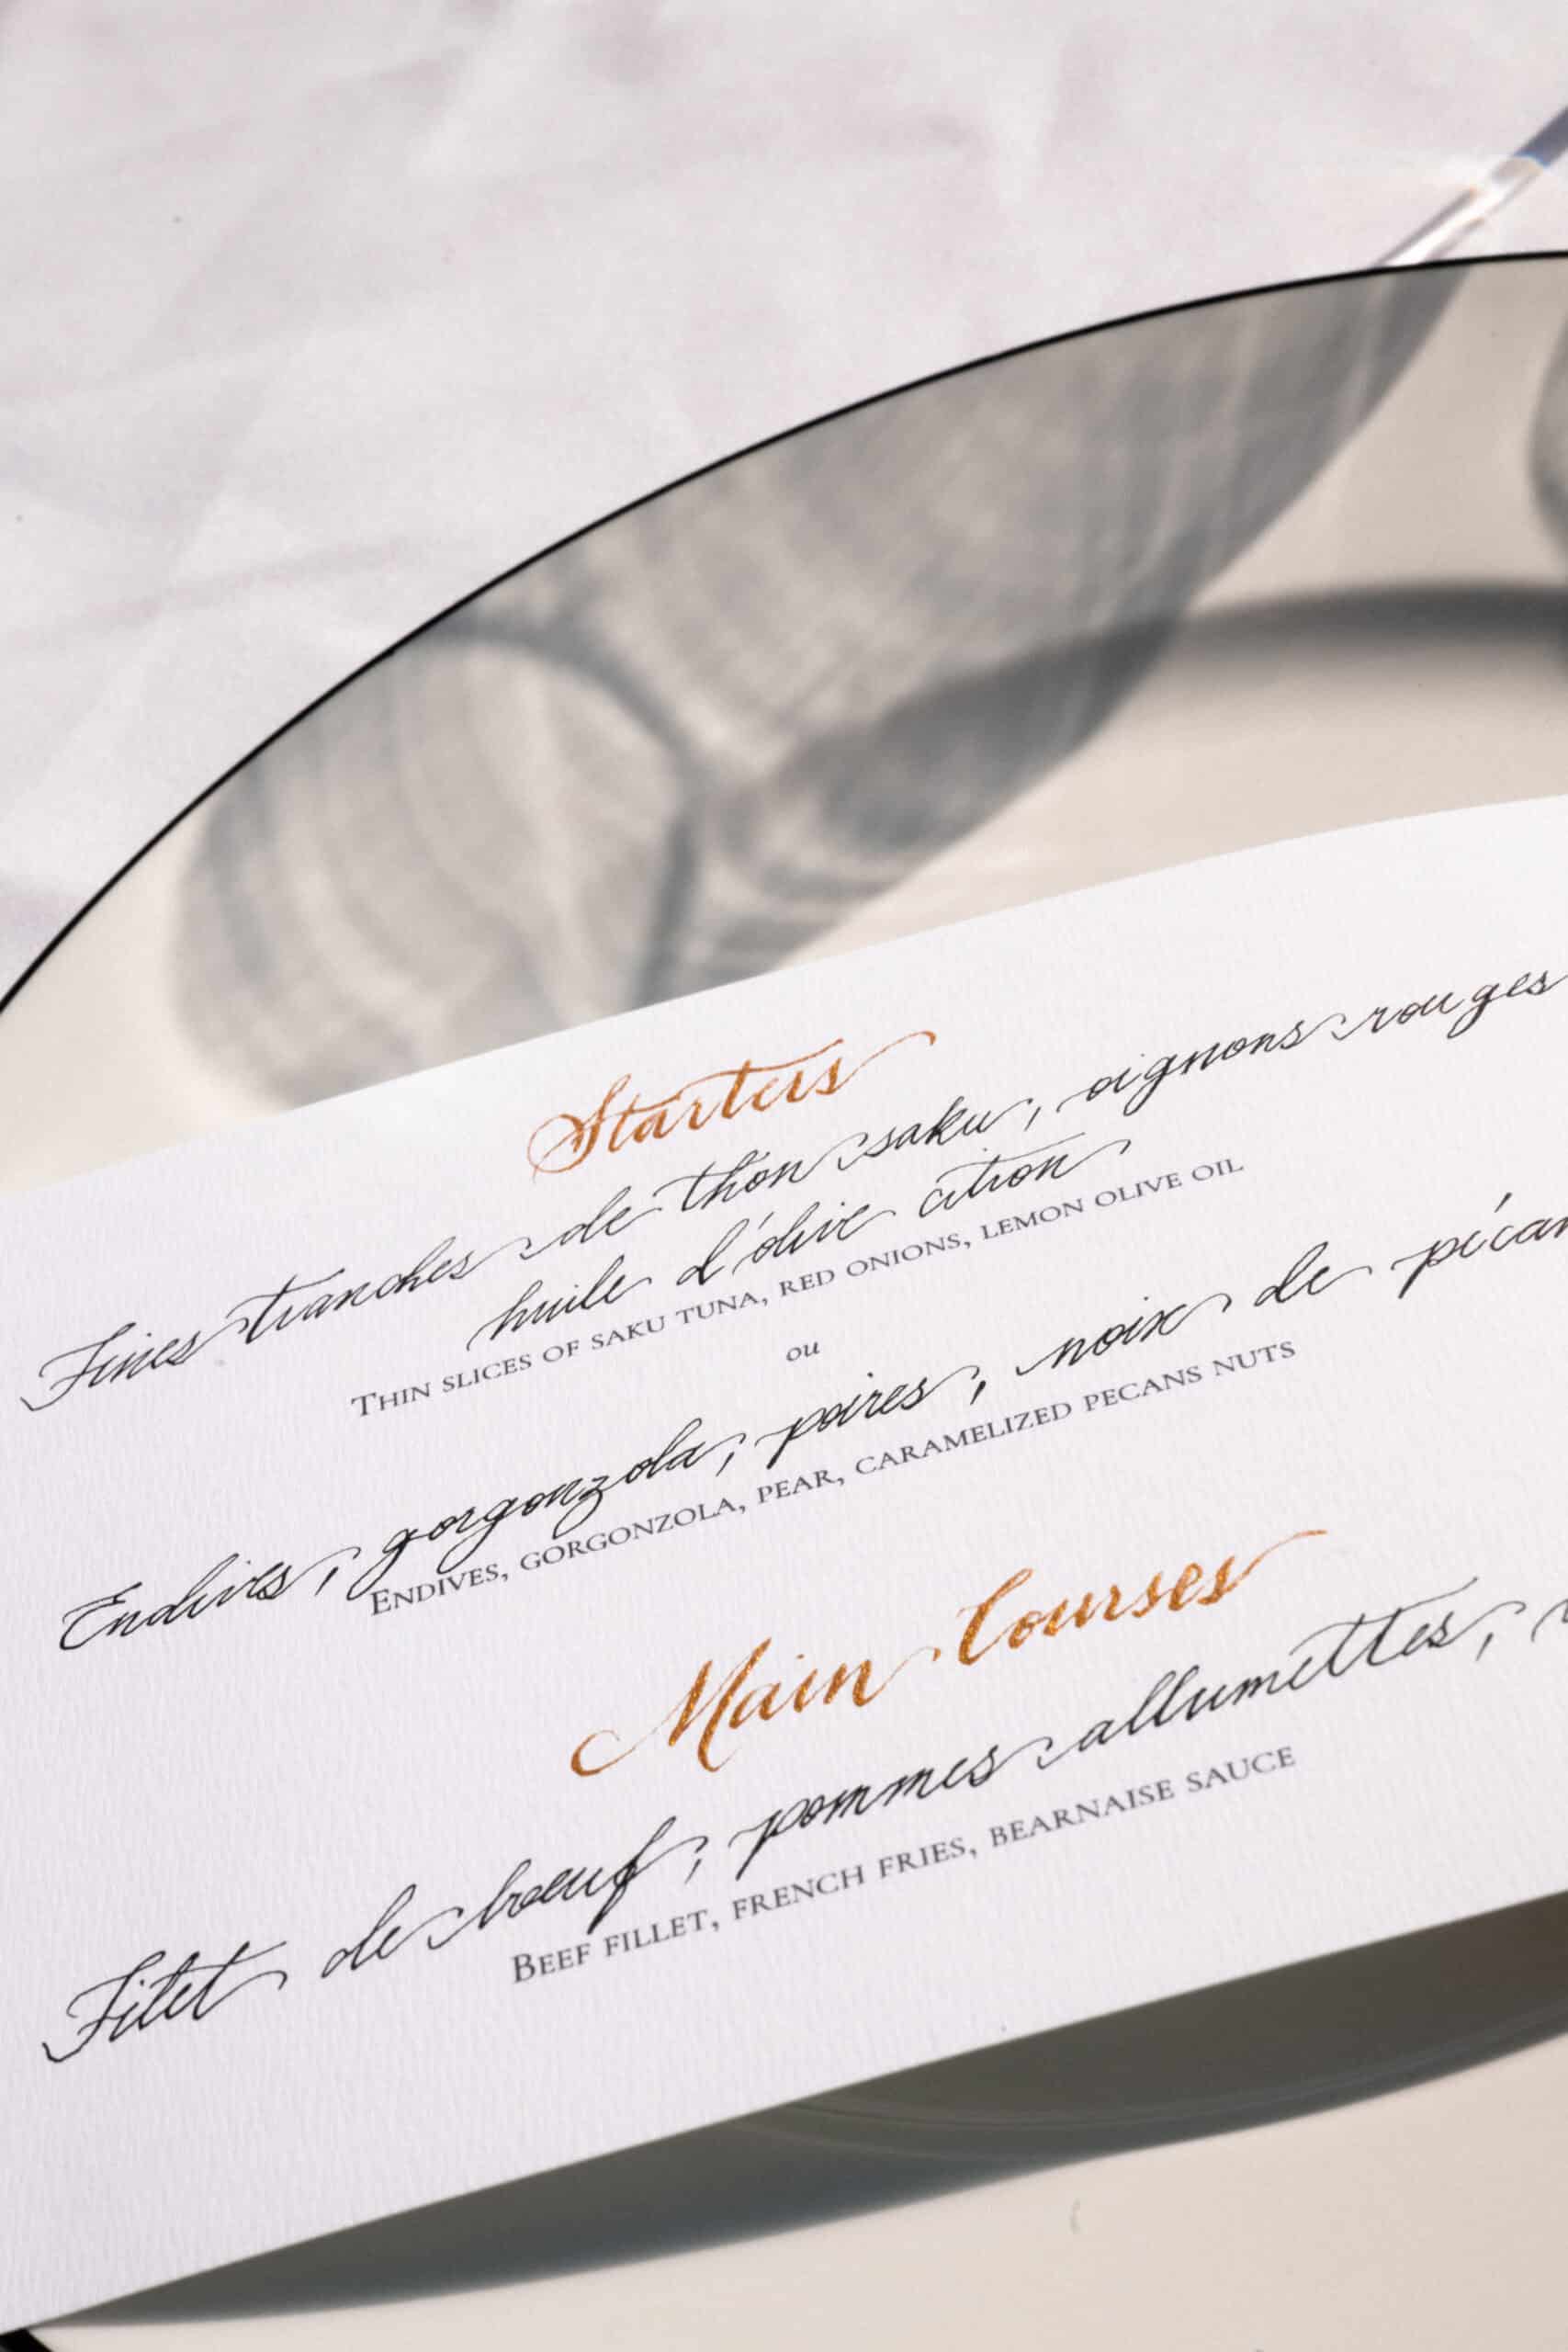 Starters
Fines tranches de thon saku, oignons rouges
huile d'olive citron
Thin slices of saku tuna, red onions, lemon olive oil
ou
Endives, gorgonzola, poires, noix de
Endives, gorgonzola, pear, caramelized pecans nuts
Main Courses
Filet de bœuf, pommes allumettes,
Beef fillet, french fries, bearnaise sauce